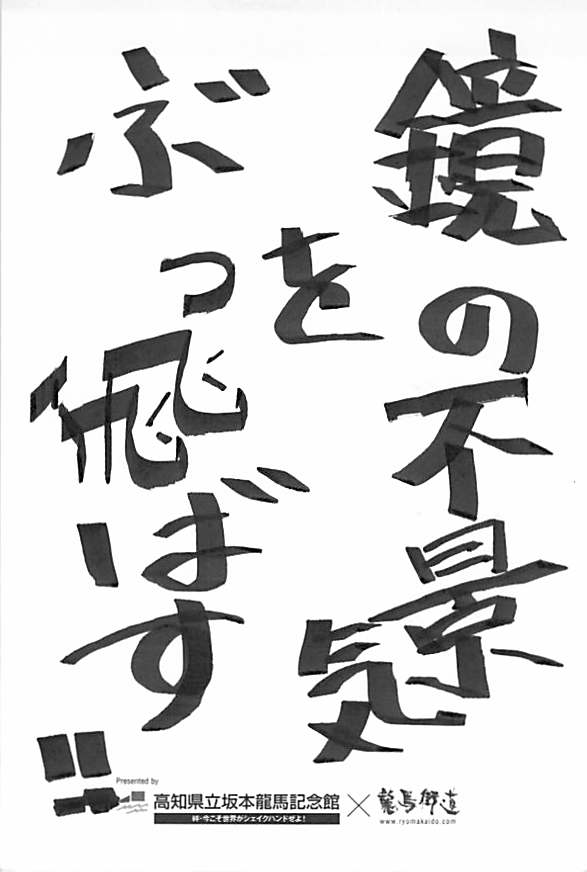 鏡の不景気
を
ぶっ飛ばす!!
Presented by
高知県立坂本龍馬記念館×龍馬街道
絆・今こそ世界がシェイクハンドぜよ!
www.ryomakaido.com